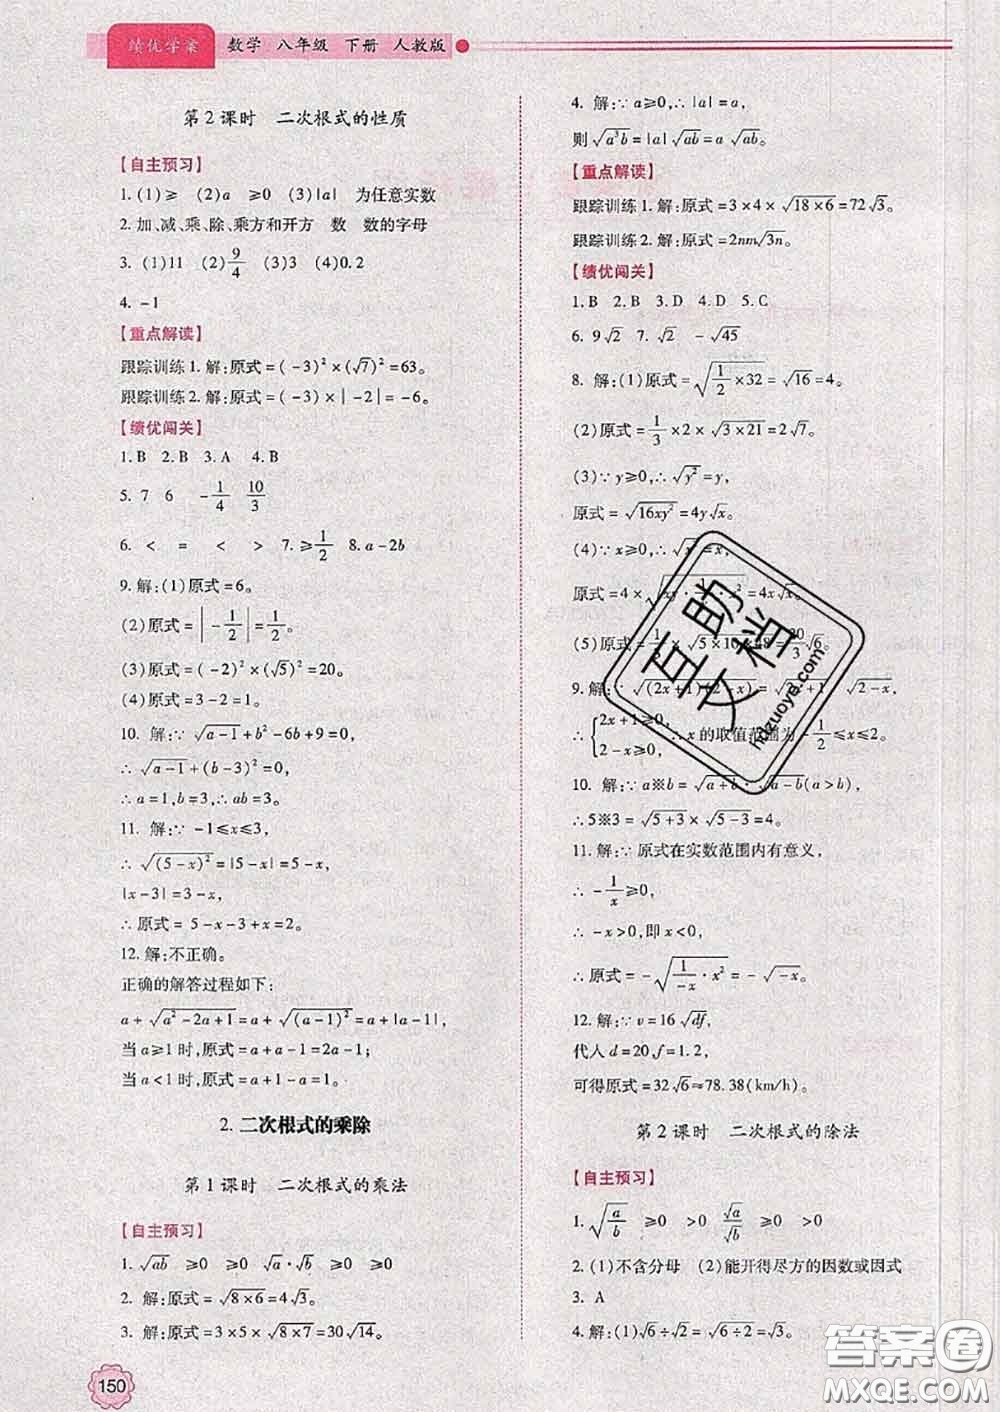 绩优学案 数学 八年级 下册 人教版
第2课时 二次根式的性质
【自主预习】
1. (1)≥ (2)a ≥0 (3)|a| 为任意实数
2. 加、减、乘、除、乘方和开方 数 数的字母
3. (1)11 (2)9/4 (3)3 (4)0.2
4. -1
【重点解读】
跟踪训练1. 解:原式=(-3)²×(√7)²=63。
跟踪训练2. 解:原式=(-3)×|-2|=-6。
【绩优闯关】
1. B 2. B 3. A 4. B
5. 7 6 -1/4 10/3
6. < = < > 7. ≥1/2 8. a-2b
9. 解:(1)原式=6。
(2)原式=|-1/2|=1/2。
(3)原式=(-2)²×(√5)²=20。
(4)原式=3-2=1。
10. 解:∵√(a-1)+b²-6b+9=0,
∴√(a-1)+(b-3)²=0,
∴a=1,b=3,∴ab=3。
11. 解:∵-1≤x≤3,
∴√((5-x)²)=|5-x|=5-x,
|x-3|=3-x,
∴原式=5-x-3+x=2。
12. 解:不正确。
正确的解答过程如下:
a+√(a²-2a+1)=a+√((a-1)²)=a+|a-1|,
当a≥1时,原式=a+a-1=2a-1;
当a<1时,原式=a+1-a=1。
2. 二次根式的乘除
第1课时 二次根式的乘法
【自主预习】
1. √ab ≥0 ≥0 √a·√b ≥0 ≥0
2. 解:原式=√(8×6)=4√3。
3. 解:原式=3×5×√(8×7)=30√14。
150
4. 解:∵a≥0,∴|a|=a,
则√(a³b)=|a|√ab=a√ab。
【重点解读】
跟踪训练1. 解:原式=3×4×√(18×6)=72√3。
跟踪训练2. 解:原式=2nm√3n。
【绩优闯关】
1. B 2. B 3. D 4. D 5. C
6. 9√2 7. √2 -√45
8. 解:(1)原式=√(1/2×32)=√16=4。
(2)原式=1/3×2×√(3×21)=2√7。
(3)∵y≥0,∴√y²=y,
原式=√(16xy²)=4y√x。
(4)∵x≥0,∴√x²=x,
原式=4×√(xy· ·x²)=4x√x。
(5)原式=1/2×√(5×10×48= /3√6。
9. 解:∵√((2x+1)(2-x))= √(2-x),
∴{2x+1≥0, 2-x≥0 ∴x的取值范围为-1/2≤x≤2。
10. 解:∵a※b=√(a+b)·√(a-b)(a>b),
∴5※3=√(5+3)×√(5-3)=4。
11. 解:∵原式在实数范围内有意义,
∴-1/x≥0,
∴-x>0,即x<0,
∴原式=-√(1/-x·x²)=-√-x。
12. 解:∵v=16√df,
代人d=20,f=1.2,
可得原式=32√6≈78.38(km/h)
第2课时 二次根式的除法
【自主预习】
1. √(a/b) ≥0 >0 √a/√b ≥0 >0
2. (1)不含分母 (2)能开得尽方的因数或因式
3. A
4. 解:(1)√6÷√2=√(6÷2)=√3。
互助文档
huzuoye.com
答案圈
MXQE.COM